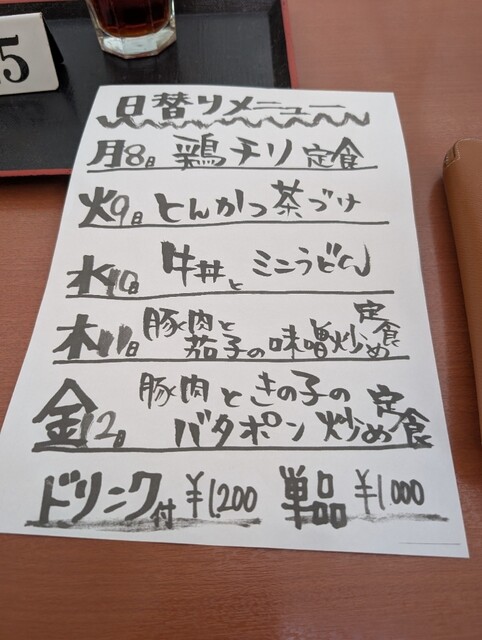 5
日替りメニュー
月8日 鶏チリ定食
火9日 とんかつ茶づけ
水10日 牛丼とミニうどん
木11日 豚肉と茄子の味噌炒め定食
金12日 豚肉ときの子のバタポン炒め定食
ドリンク付 ¥1,200 単品 ¥1,000